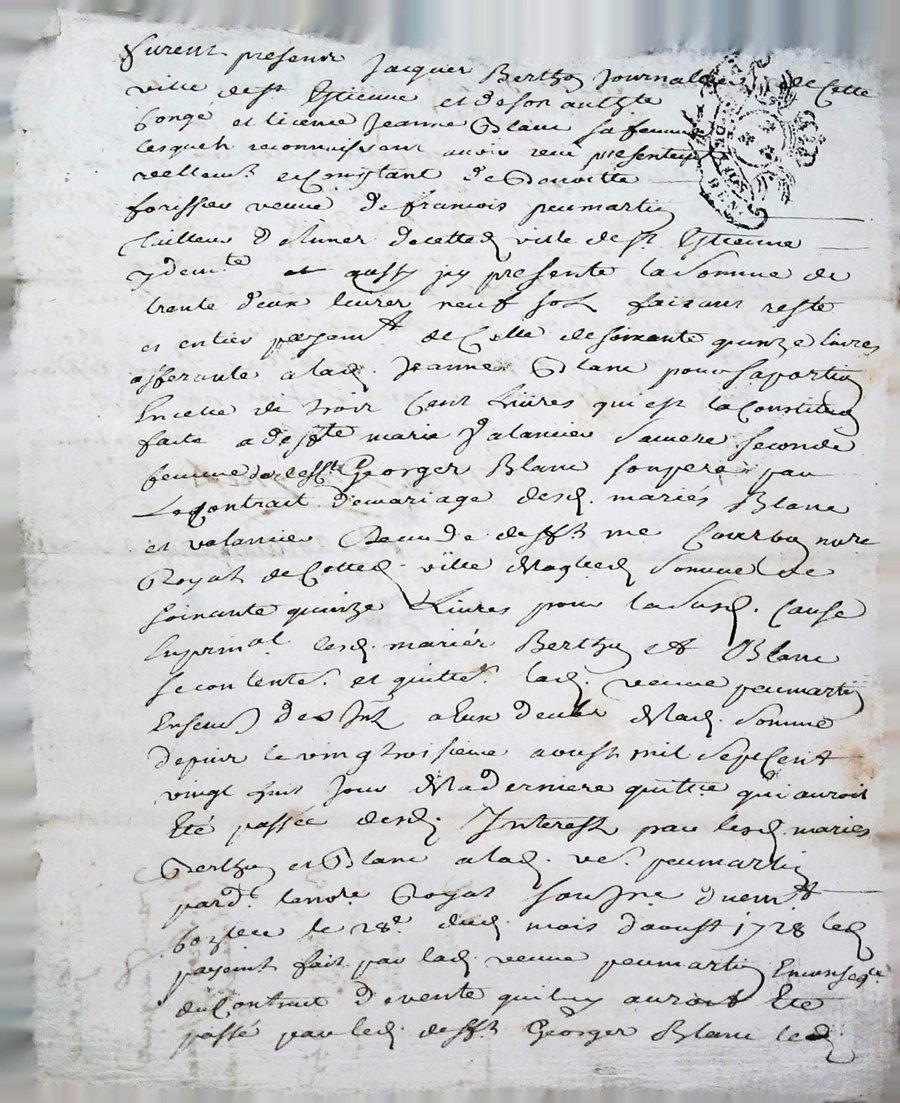 furent presents Jacques Berthon Journallier de Cette
ville de st Estienne et de son authte
Congé et licence Jeanne Blanc sa femme
lesquels reconnoissent avoir receu presentement
reellement et comptant de
forissier veuve de francois peumartin
tailleur d'Limes de cetted ville de st Estienne
y demte et aussy icy presente la somme de
trente deux livres neuf sols faisant reste
et entier payemt de Celle de soixante quinze livres
afferante a lad. Jeanne Blanc pour sa portion
En celle de trois Cent Livres qui est la Constitution
faite a deffte marie Valancier sa mere seconde
femme de defft George Blanc son pere par
Le Contrait de mariage desd. mariés Blanc
et valancier Receu de defft me Courbon nore
Royal de Cetted. ville de laqled somme de
soixante quinze Livres pour la susd. Cause
En prinal lesd. mariés Berthon et Blanc
se contentet. et quittet. lad. veuve peumartin
Ensemb des Intz a eux deubs de lad. somme
depuis le vingt troisieme aoust mil sept Cent
vingt huit jour de la derniere quittce qui auroit
Eté passée desd. Interests par lesd. mariés
Berthon et Blanc a lad. ve. peumartin
pard. le nore Royal soussne duemt
le 28e. dud. mois d'aoust 1728 led
payemt fait par lad. veuve peumartin En conseqce
du Contrait de vente qui luy auroit Eté
passé par led. defft George Blanc led